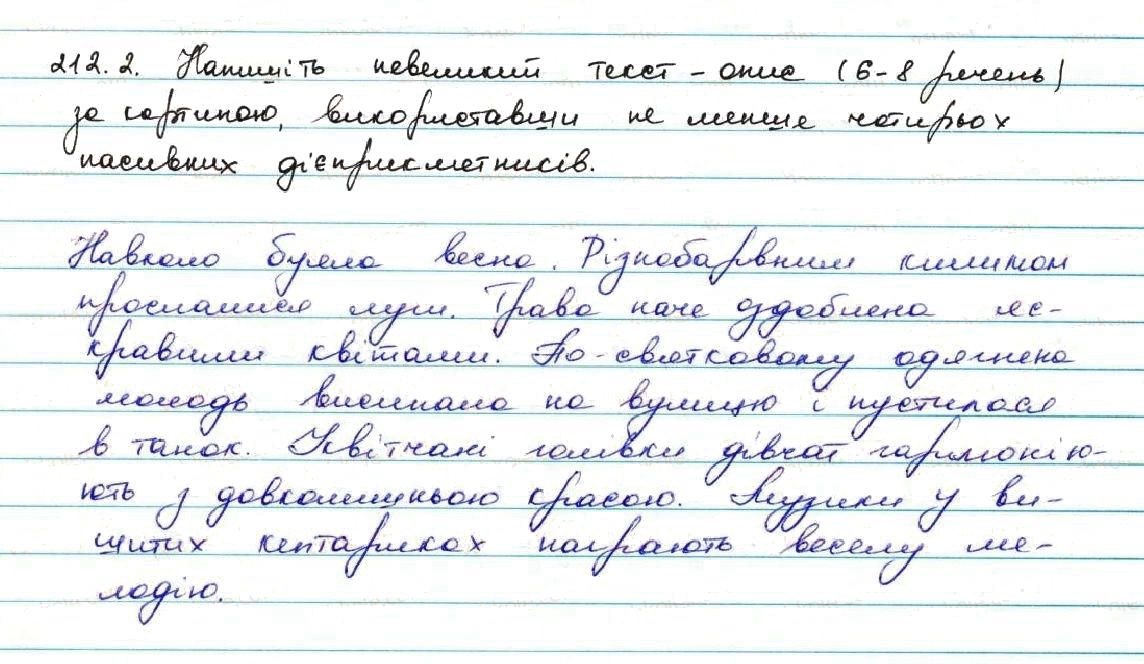 212.2. Напишіть невеликий текст-опис (6-8 речень)
за картиною, використавши не менше чотирьох
пасивних дієприкметників.
Навколо буяла весна. Різнобарвним килимом
прослалися луги. Трава наче оздоблена яс-
кравими квітами. По-святковому одягнена
молодь висипала на вулицю і пустилася
в танок. Уквітчані голівки дівчат гармонію-
ють з довколишньою красою. Музики у ви-
шитих кептариках награють веселу ме-
лодію.